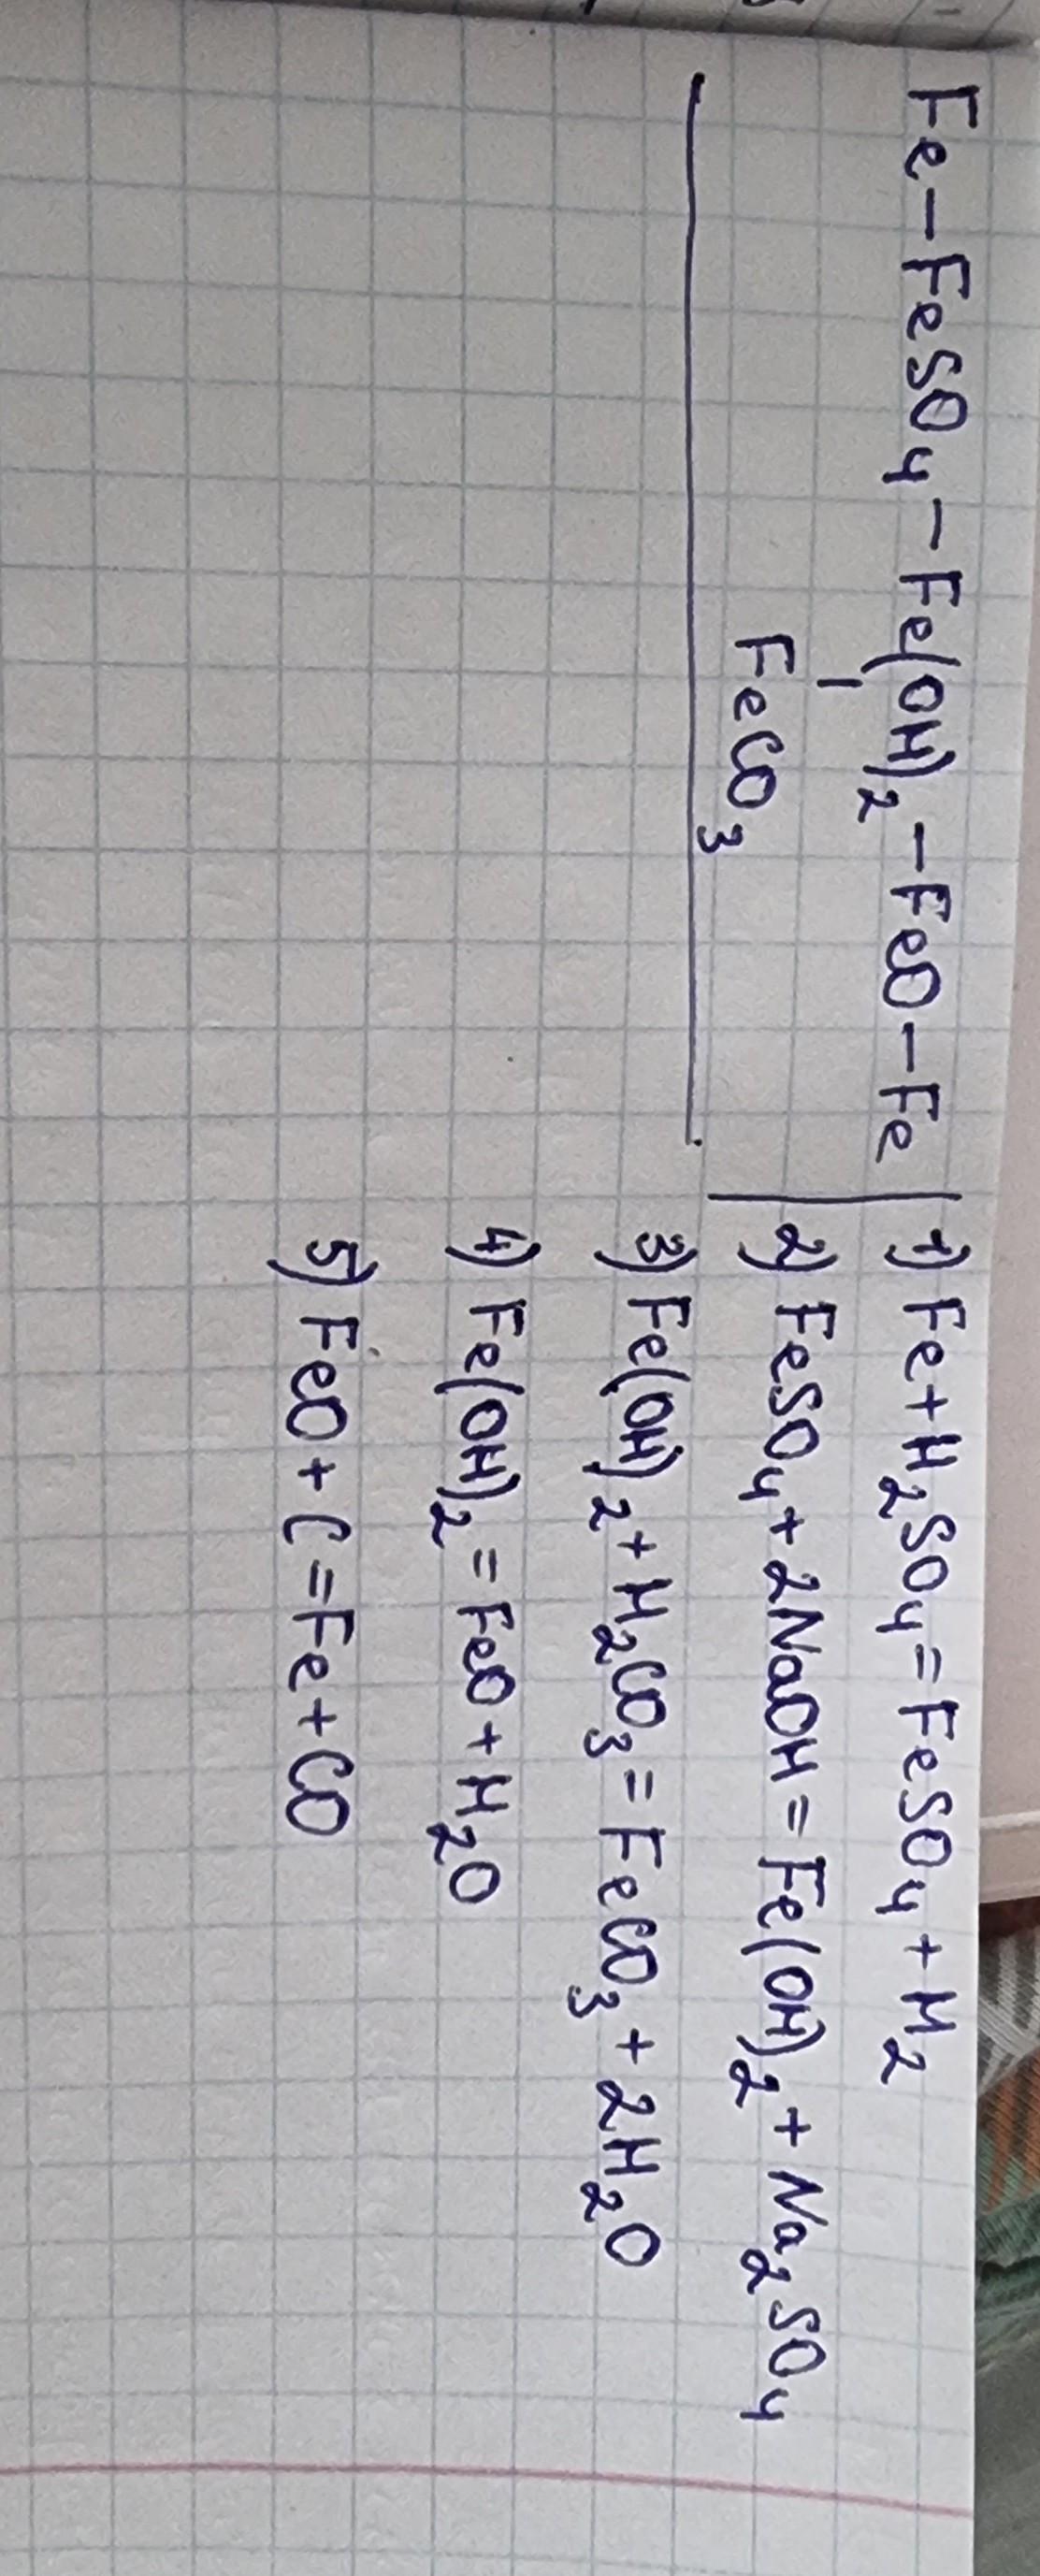 Fe–FeSO₄–Fe(OH)₂–FeO–Fe
FeCO₃
1) Fe+H₂SO₄=FeSO₄+H₂
2) FeSO₄+2NaOH=Fe(OH)₂+Na₂SO₄
3) Fe(OH)₂+H₂CO₃=FeCO₃+2H₂O
4) Fe(OH)₂=FeO+H₂O
5) FeO+C=Fe+CO